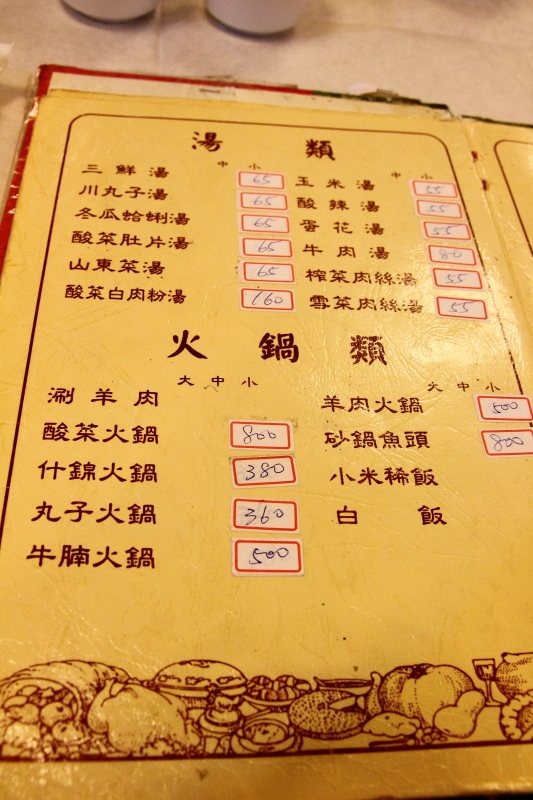 湯 類
中 小
三鮮湯 65
川丸子湯 65
冬瓜蛤蜊湯 65
酸菜肚片湯 65
山東菜湯 65
酸菜白肉粉湯 160
中 小
玉米湯 55
酸辣湯 55
蛋花湯 55
牛肉湯 80
榨菜肉絲湯 55
雪菜肉絲湯 55
火鍋類
大 中 小
涮羊肉
酸菜火鍋 800
什錦火鍋 380
丸子火鍋 360
牛腩火鍋 500
大 中 小
羊肉火鍋 500
砂鍋魚頭 800
小米稀飯
白飯